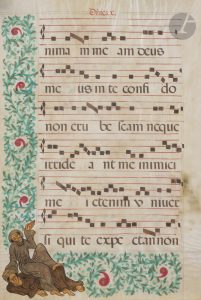 nima m me am deus
me us in te confi do
non eru be scam neque
irride ant me inimici
me i etenim v niver
si qui te expe ctant non